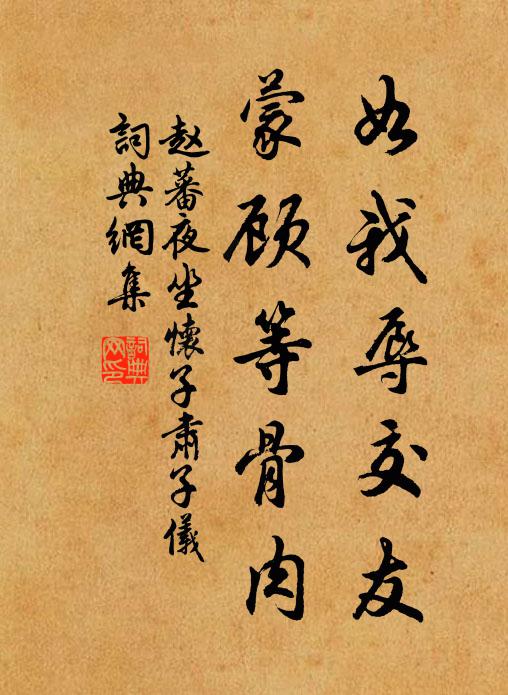 如我辱交友
蒙顾等骨肉
赵蕃夜坐懷子肅子儀
詞典網集
詞典網印